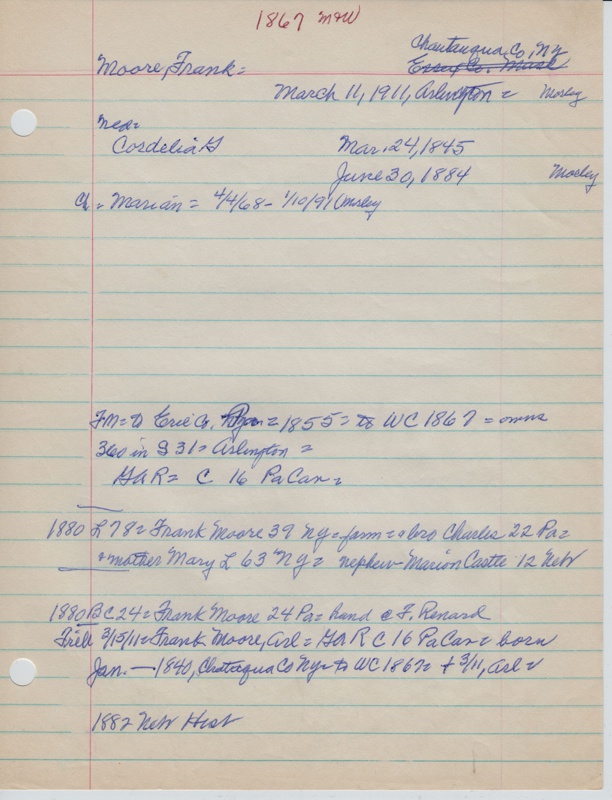 1867 M&W
Chautauqua Co, Ny
Moore, Frank = Essex Co. Mass
March 11, 1911, Arlington = Mosley
med=
Cordelia G Mar. 24, 1845
June 30, 1884 Mosley
Ch = Marian = 4/4/68 - 1/10/91 (Mosley
FM = to Erie Co, = 1855 = to WC 1867 = owns
360 in S 31 = Arlington =
GAR = C 16 Pa Cav =
1880 L 78 = Frank Moore 39 Ny = farm = + bro Charles 22 Pa =
+ mother Mary L 63 Ny = nephew Marion Castle 12 Neb
1880 B C 24 = Frank Moore 24 Pa = hand c F. Renard
3/15/11 = Frank Moore, Arl = GAR C 16 Pa Cav = born
Jan. — 1840, Chataqua Co Ny = to WC 1867 = + 3/11, Arl =
1882 Neb Hist